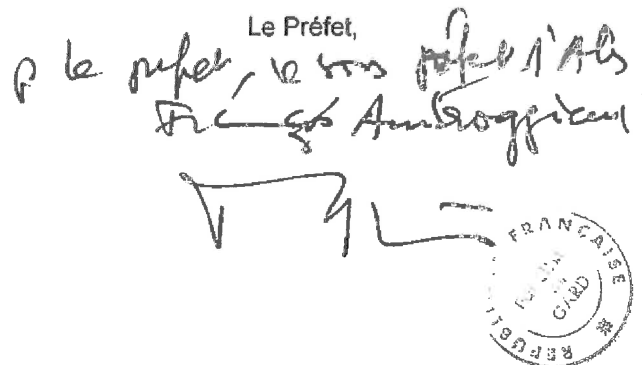 Le Préfet,
P le préfet, le sous préfet d'Alès
François Ambroggiani
RÉPUBLIQUE FRANÇAISE
GARD